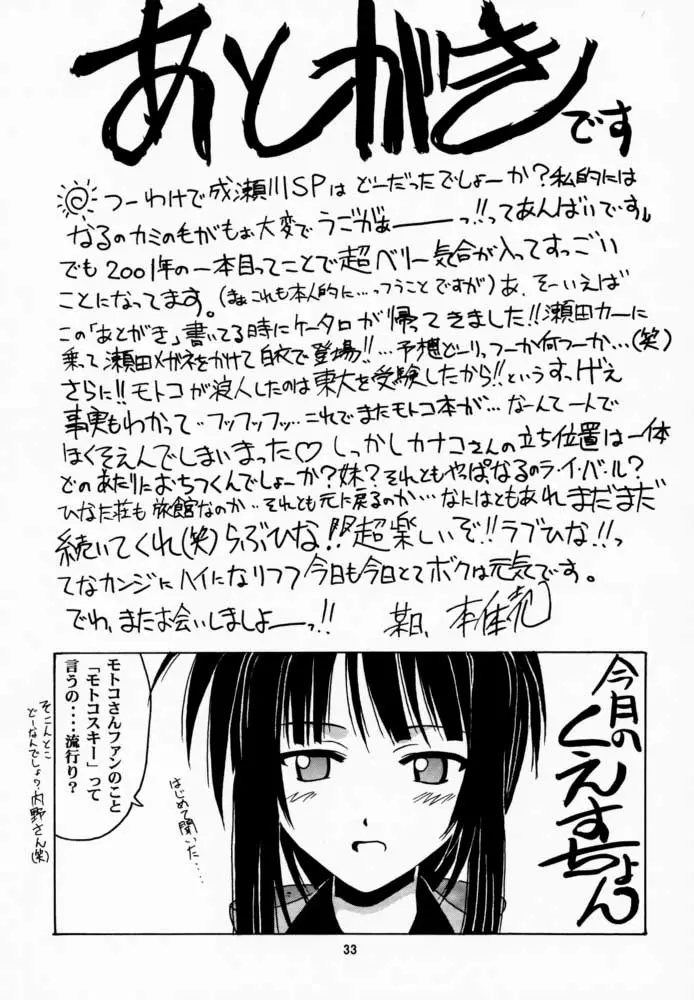 あとがき
です
つーわけで成瀬川SPはどーだったでしょーか?私的には
なるのカミの毛がもぉ大変でうごがぁーーっ!!ってあんばいです。
でも2001年の一本目ってことで超ベリー気合が入ってすっごい
ことになってます。(まぁこれも本人的に…っつうことですが)あ、そーいえば
この「あとがき」書いてる時にケータロが帰ってきました!!瀬田カーに
乗って瀬田メガネをかけて白衣で登場!!…予想どーりっつーか何つーか…(笑)
さらに!!モトコが浪人したのは東大を受験したから!!というすっげえ
事実もわかって‥フッフッフッ…これでまたモトコ本が…なーんて一人で
ほくそえんでしまいまった♡しっかしカナコさんの立ち位置は一体
どのあたりにおちつくんでしょーか?妹?それともやぱなるのラ・イ・バ・ル?
ひなた荘も旅館なのか‥それとも元に戻るのか…なにはともあれまだまだ
続いてくれ(笑)らぶひな!!超楽しいぞ!!ラブひな!!っ
てなカンジにハイになりつつ今日も今日とてボクは元気です。
でわ、またお会いしましょーーっ!!
今月の
くえすちょん
モトコさんファンのこと
「モトコスキー」って
言うの‥‥流行り?
はじめて聞いた…
そこんとこ
どーなんでしょ?内野さん(笑)
33